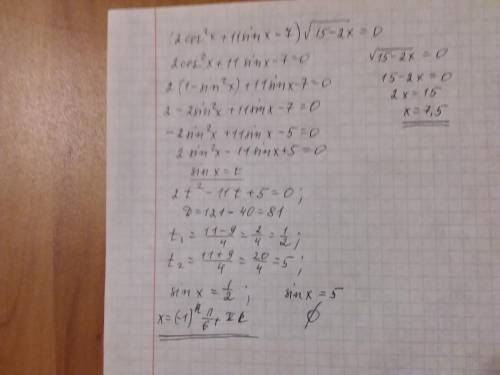 (2cos²x+11sinx-7)√15-2x=0
2cos²x+11sinx-7=0
2(1-sin²x)+11sinx-7=0
2-2sin²x+11sinx-7=0
-2sin²x+11sinx-5=0
2sin²x-11sinx+5=0
sinx=t
2t²-11t+5=0;
D=121-40=81
t₁=(11-9)/4=2/4=1/2;
t₂=(11+9)/4=20/4=5;
sinx=1/2; sinx=5
x=(-1)ᵏπ/6+πk ∅
√15-2x=0
15-2x=0
2x=15
x=7,5